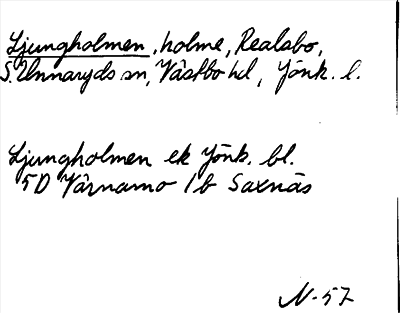 Ljungholmen, holme, Realsbo,
S. Unnaryds sn, Västbo hd, Jönk. l.
Ljungholmen ek Jönk. bl.
5D Värnamo 1b Saxnäs
N-57